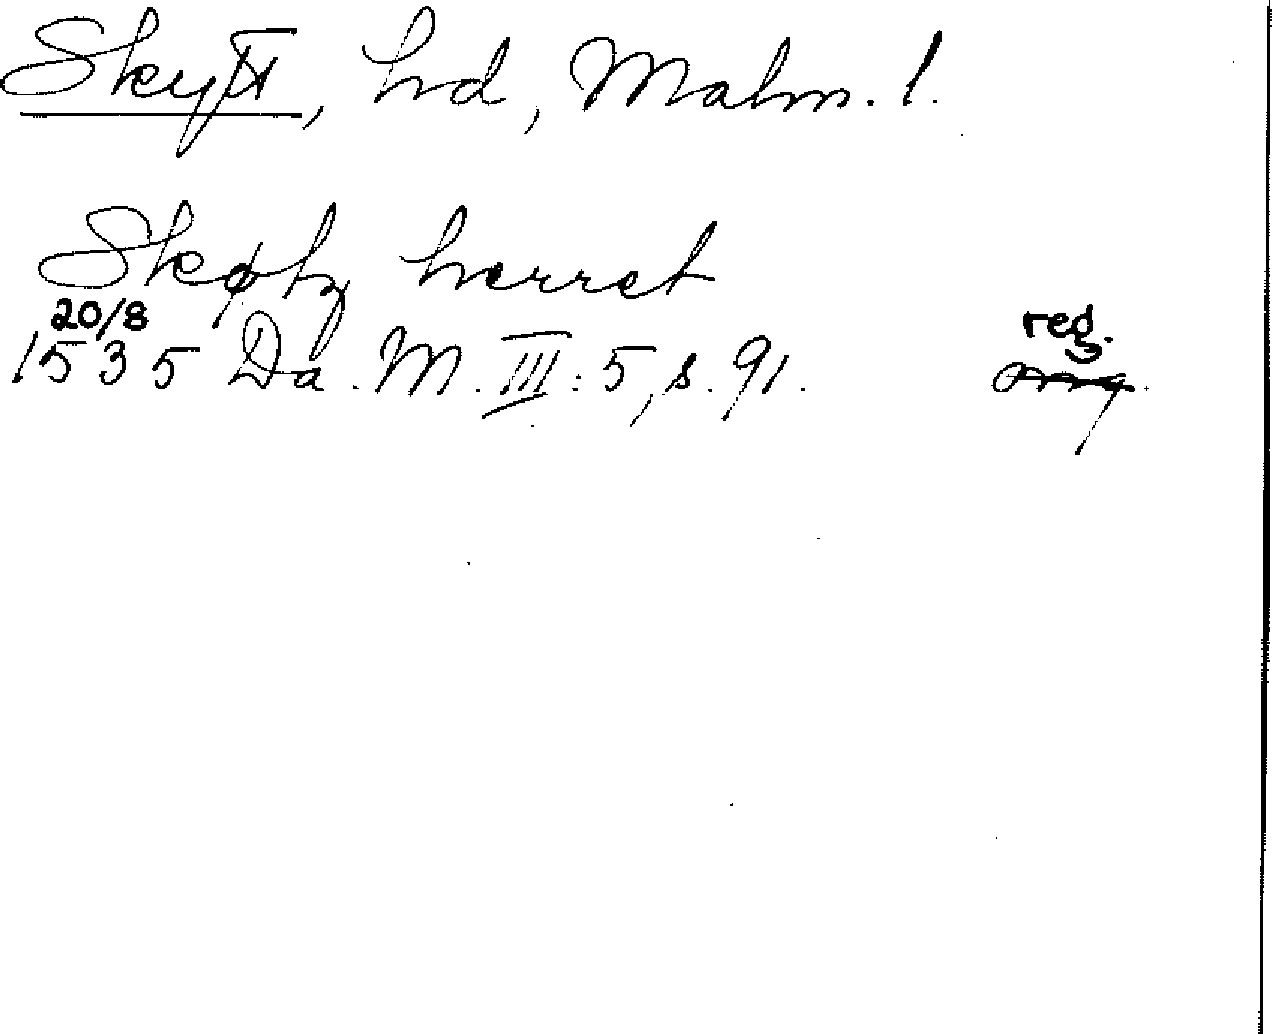 Skytt, hd, Malm. l.
Skøtz herret
20/8
1535 Da. M. III: 5, s. 91.
reg.